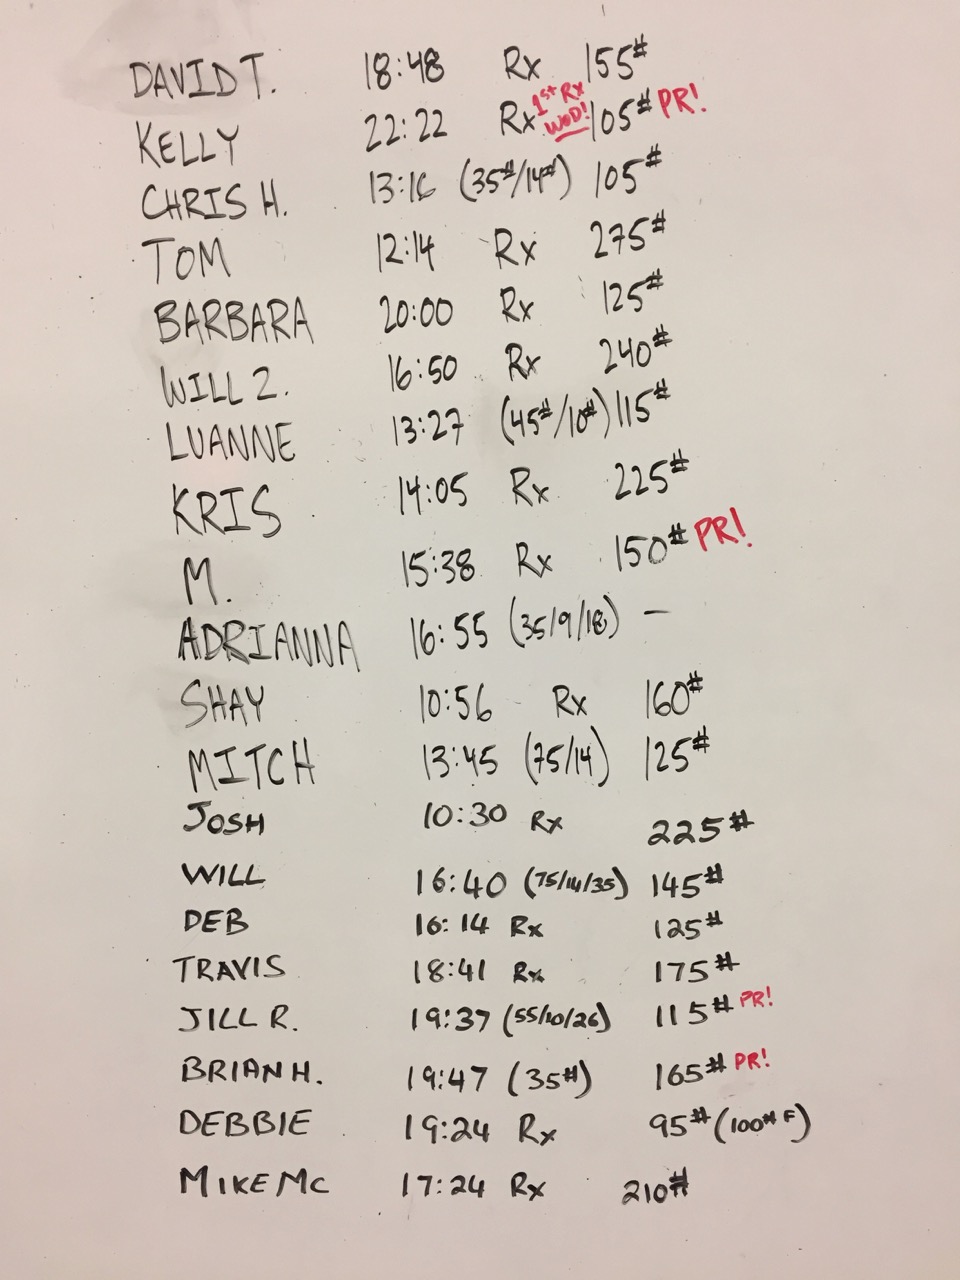 DAVID T. 18:48 Rx 155#
KELLY 22:22 Rx 1st Rx WOD! 105# PR!
CHRIS H. 13:16 (35#/14#) 105#
TOM 12:14 Rx 275#
BARBARA 20:00 Rx 125#
WILL Z. 16:50 Rx 240#
LUANNE 13:27 (45#/10#) 115#
KRIS 14:05 Rx 225#
M. 15:38 Rx 150# PR!
ADRIANNA 16:55 (35/9/18) —
SHAY 10:56 Rx 160#
MITCH 13:45 (75/14) 125#
JOSH 10:30 Rx 225#
WILL 16:40 (75/14/35) 145#
DEB 16:14 Rx 125#
TRAVIS 18:41 Rx 175#
JILL R. 19:37 (55/10/26) 115# PR!
BRIAN H. 19:47 (35#) 165# PR!
DEBBIE 19:24 Rx 95# (100# F)
MIKE MC 17:24 Rx 210#